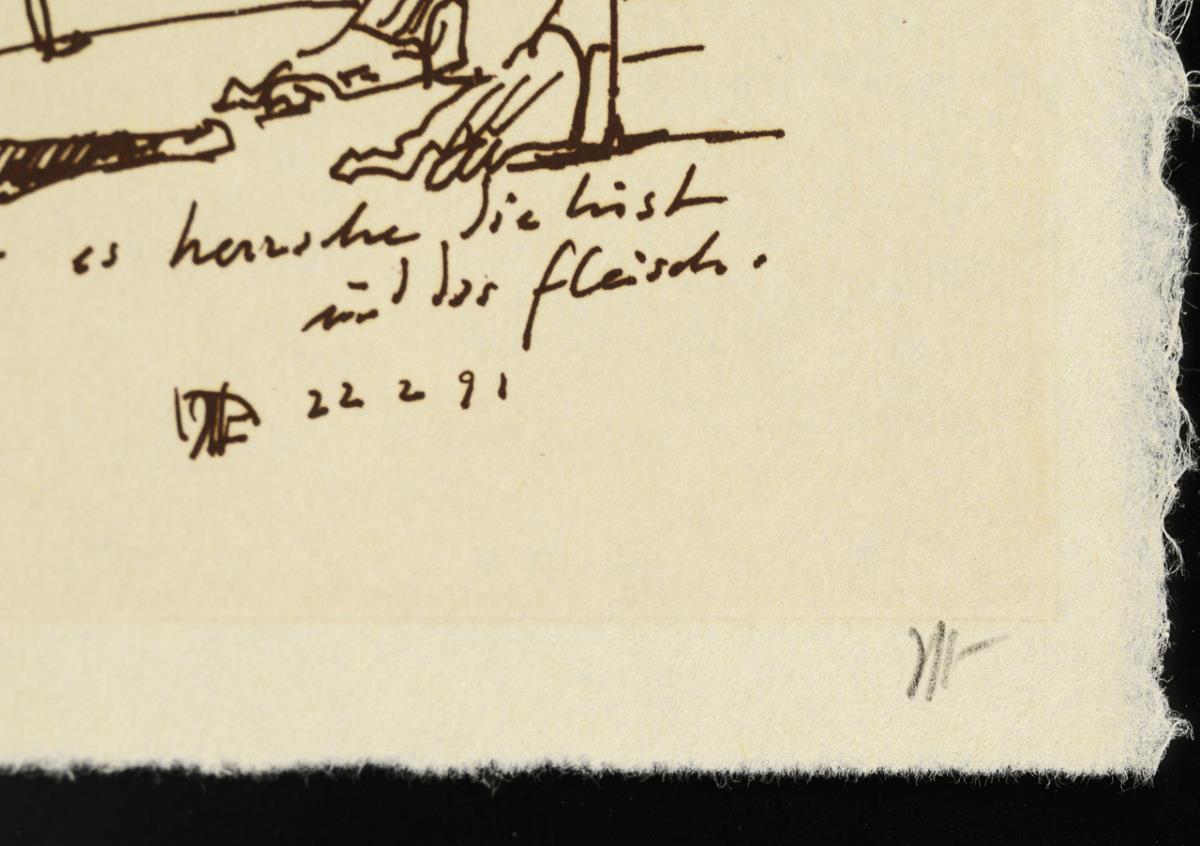 es herrsche die lust
und das fleisch.
22 2 91